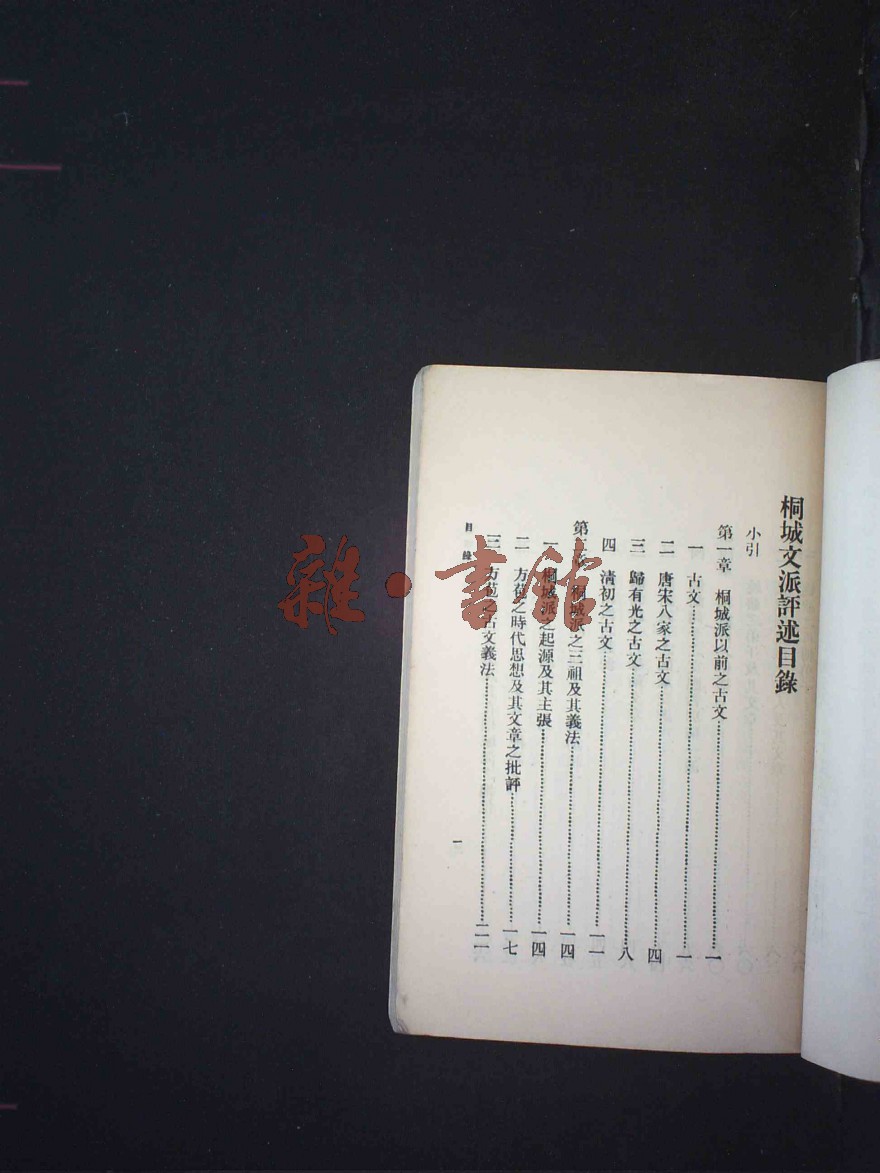 桐城文派評述目錄
小引
第一章 桐城派以前之古文……一
一 古文……一
二 唐宋八家之古文……四
三 歸有光之古文……八
四 清初之古文……一一
第二章 桐城派之三祖及其義法……一四
一 桐城派之起源及其主張……一四
二 方苞之時代思想及其文章之批評……一七
三 方苞之古文義法……二一
目錄
一
雜·書館